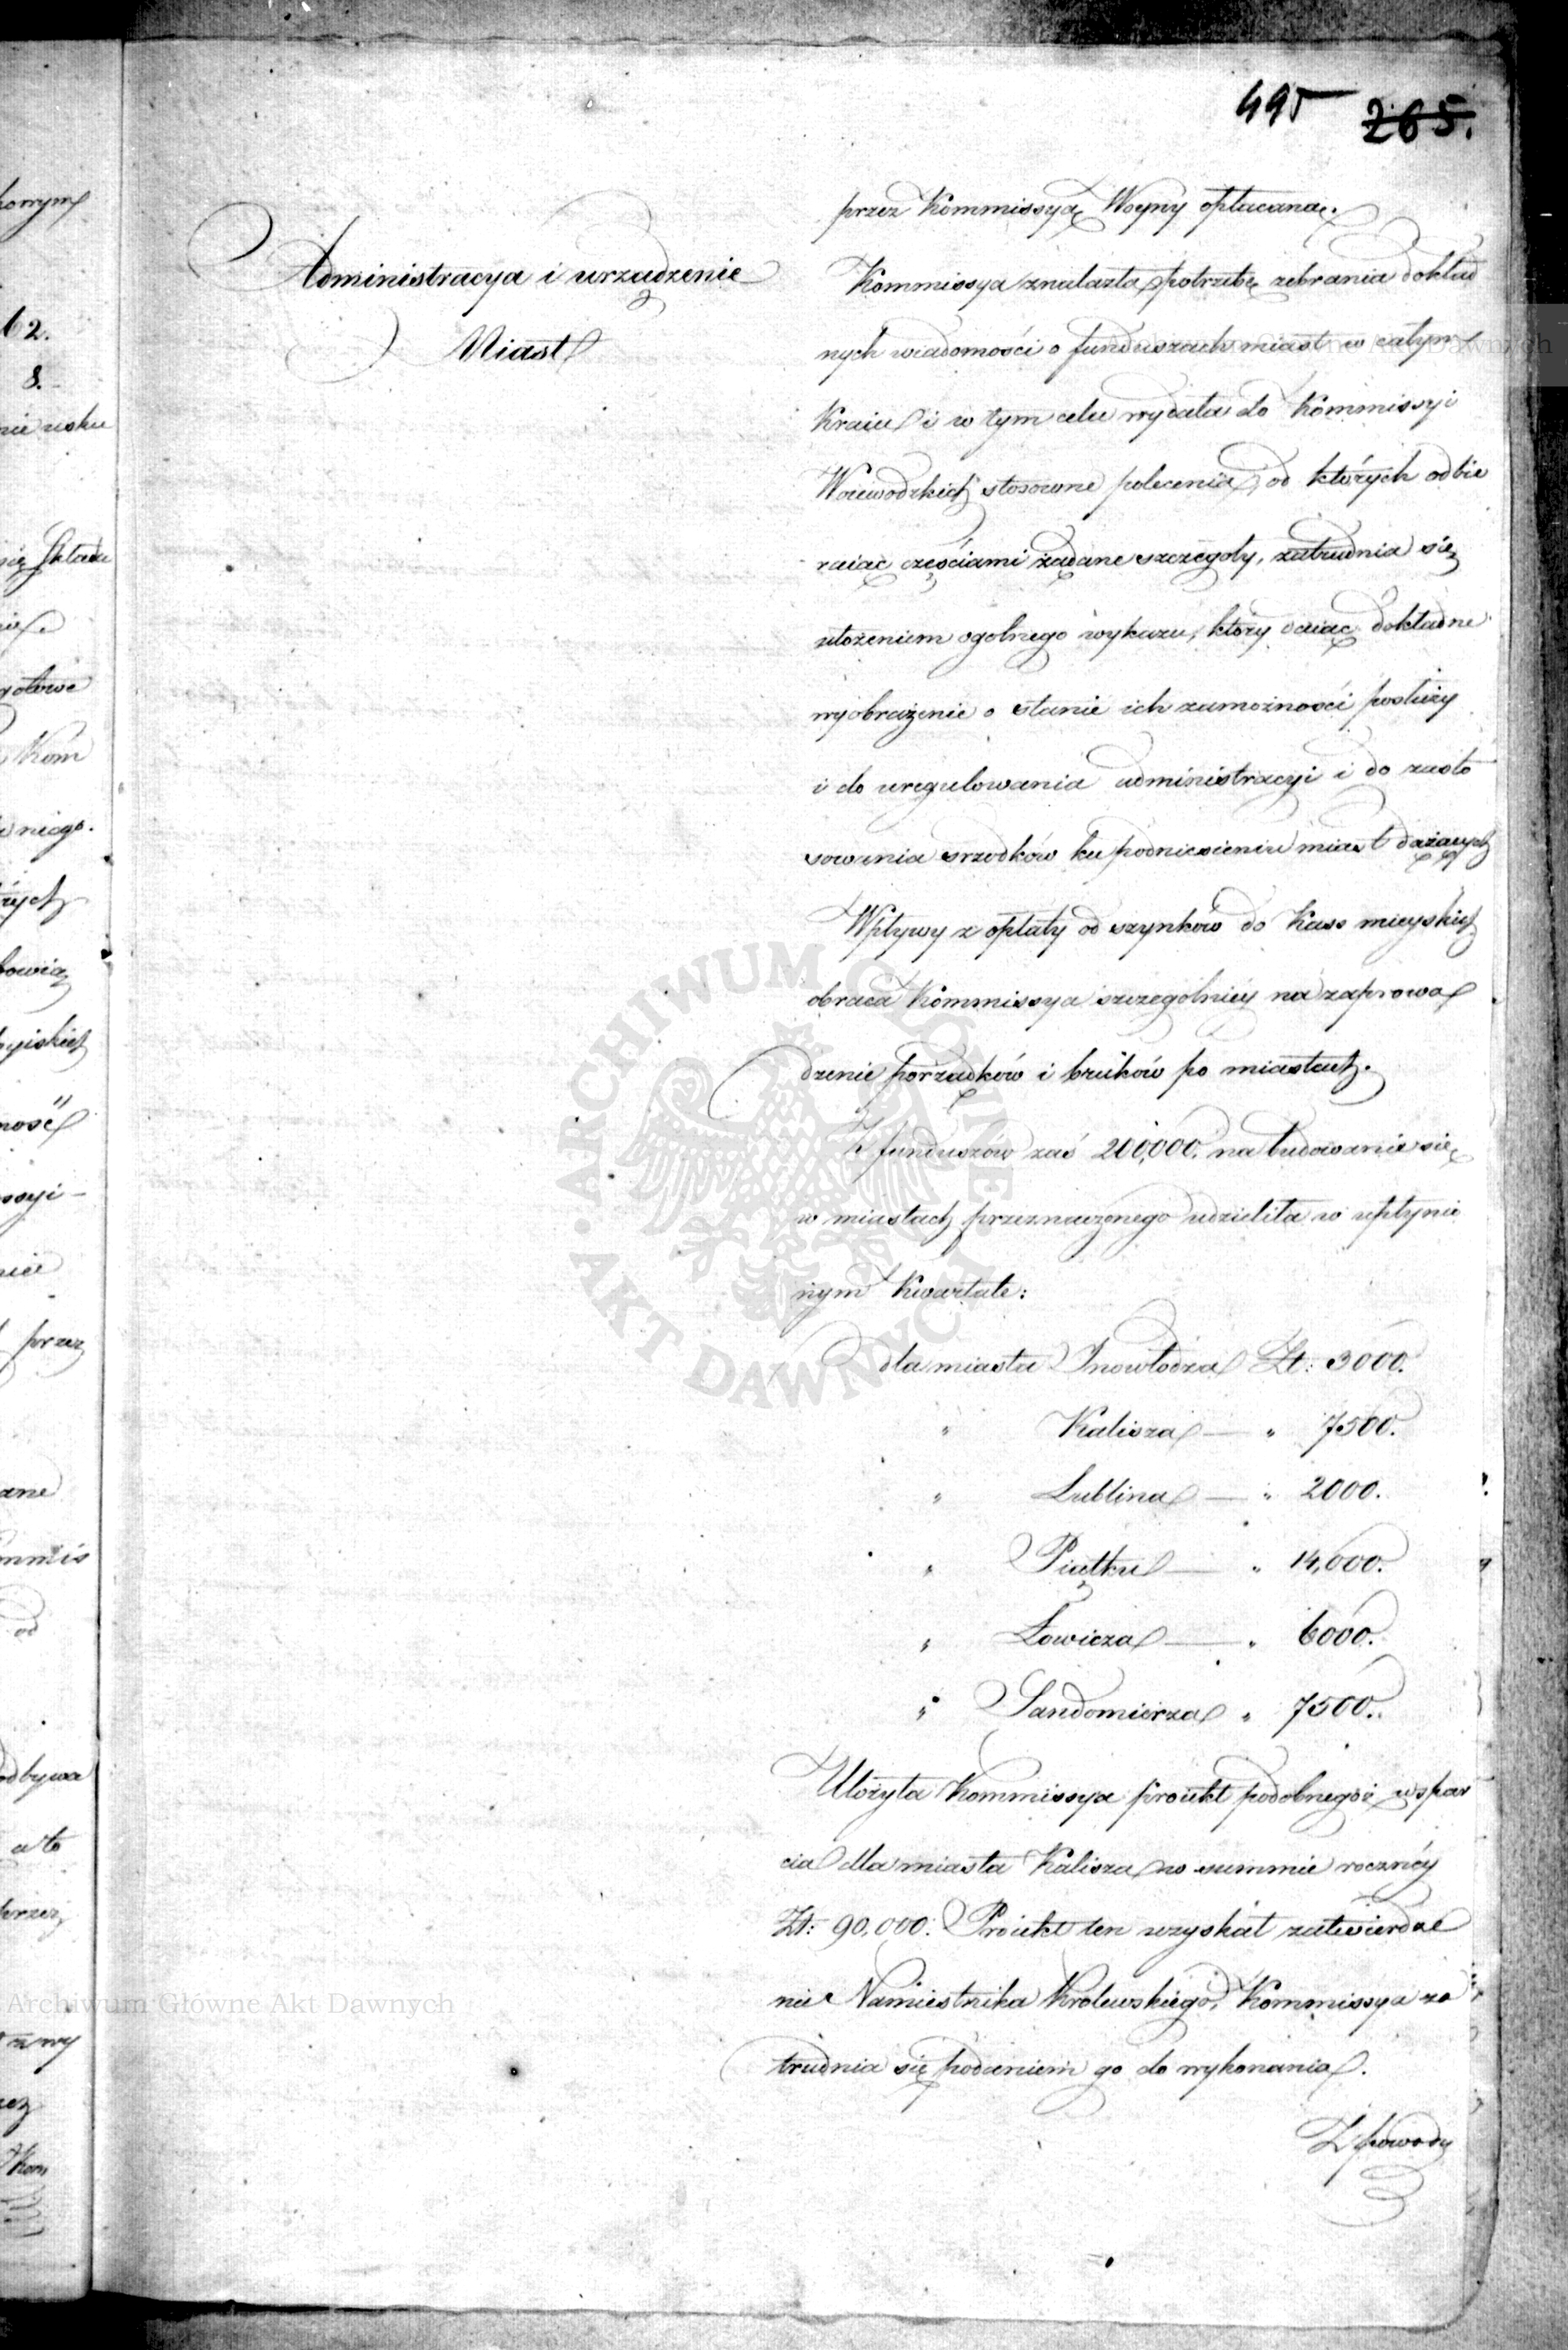 495 265.
przez Kommissyą Woyny opłacaną.
Administracya i urządzenie
Miast
Kommissya znalazła potrzebę zebrania dokład
nych wiadomości o funduszach miast w całym
Kraiu i w tym celu wydała do Kommissyi
Woiewodzkich stosowne polecenia, od których odbie
raiąc częściami żądane szczegoły, zatrudnia się
ułożeniem ogolnego wykazu, który daiąc dokładne
wyobrażenie o stanie ich zamożności posłuży
i do uregulowania administracyi i do zasto
sowania srzodków ku podniesieniu miast dążących
Wpływy z opłaty od szynków do Kass mieyskich
obraca Kommissya szczególniey na zaprowa
dzenie porządków i bruków po miastach.
Z funduszów zaś 200,000. na budowanie się
w miastach przeznaczonego udzieliła w upłynio
nym Kwartale:
dla miasta Inowłodza Zł: 3000.
" Kalisza — " 7500.
" Lublina — " 2000.
" Piątku — " 14,000.
" Łowicza — " 6000.
" Sandomierza " 7500.
Ułożyła Kommissya proiekt podobnegoż wspar
cia dla miasta Kalisza w summie roczney
Zł: 90,000. Proiekt ten uzyskał zatwierdze
nie Namiestnika Krolewskiego, Kommissya za
trudnia się podaniem go do wykonania.
Z powody
62.
8.
nie usku
gotowe
Kom
niego.
przez
odbywa
a to
przez
Kom
Archiwum Główne Akt Dawnych
ARCHIWUM GŁÓWNE
AKT DAWNYCH